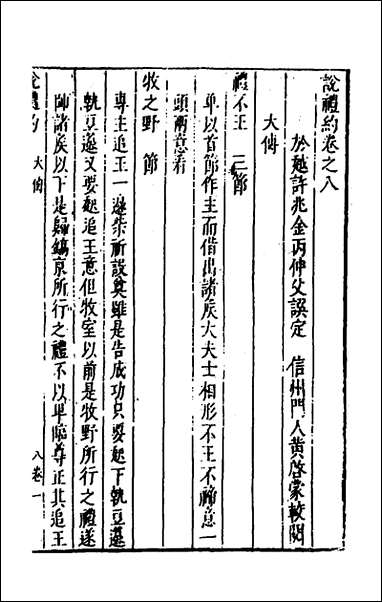 說禮約卷之八
於越許兆金丙仲父譔定　信州門人黃啓蒙較閱
大傳
禮不王　三節
單以首節作主而借出諸矦大夫士相形不王不禘意一
頭兩意看
牧之野　節
專主追王一邉柴祈設奠雖是告成功只要起下執豆籩
執豆籩又要起追王意但牧室以前是牧野所行之禮遂
師諸矦以下是歸鎬京所行之禮不以卑臨尊正其追王
說禮約　大傳　八卷一